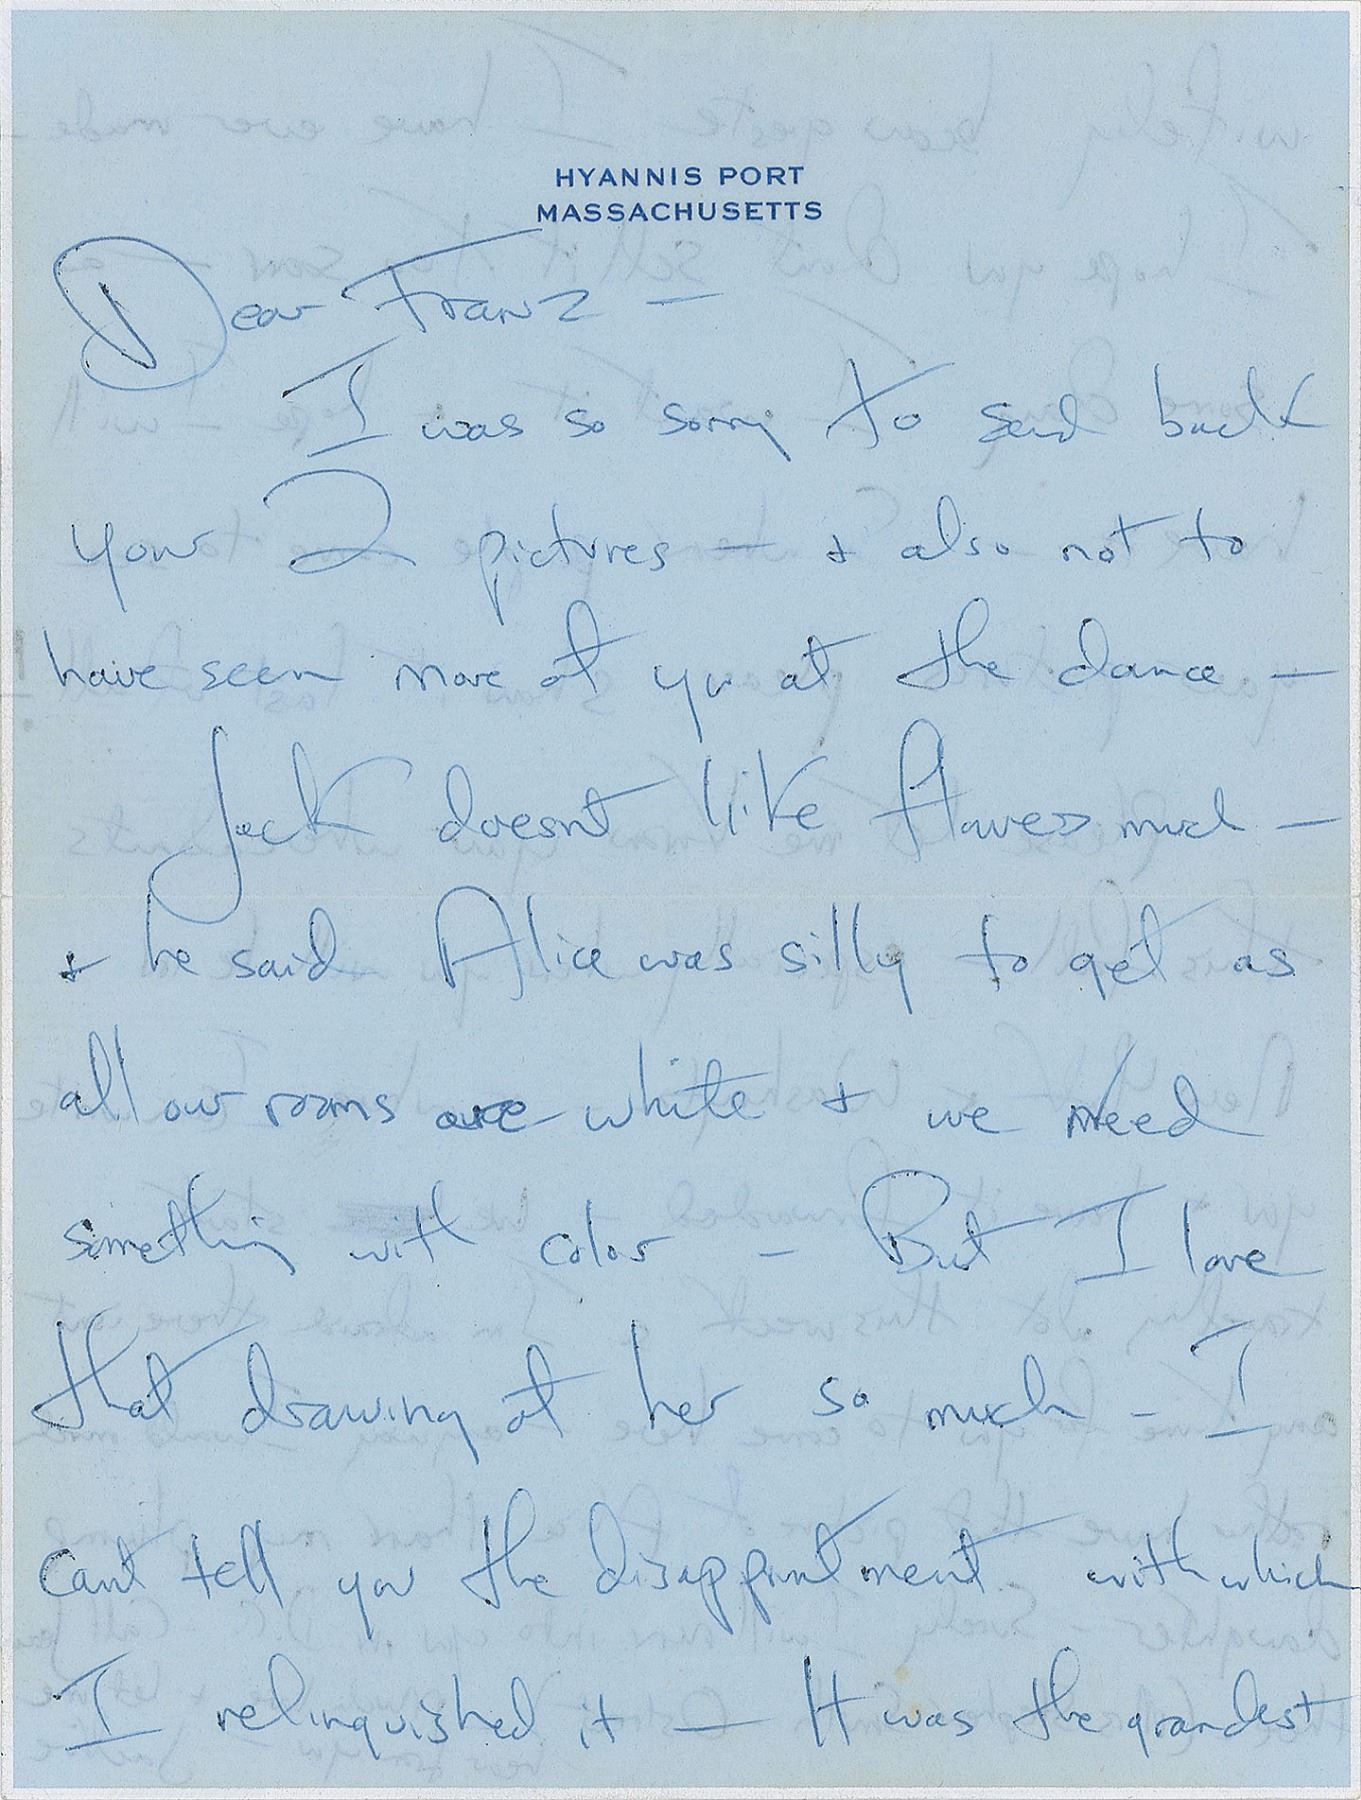 HYANNIS PORT
MASSACHUSETTS
Dear Franz —
I was so sorry to send back
your 2 pictures — + also not to
have seen more of you at the dance —
Jack doesnt like flowers much —
+ he said Alice was silly to get as
all our rooms are white + we need
something with color — But I love
that drawing of her so much — I
cant tell you the disappointment with which
I relinquished it — It was the grandest